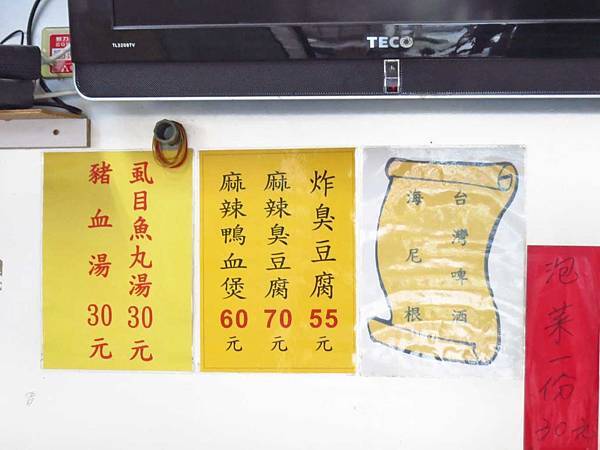 TECO
TL3208TV
虱目魚丸湯30元
豬血湯30元
炸臭豆腐55元
麻辣臭豆腐70元
麻辣鴨血煲60元
台灣啤酒
海尼根
泡菜一份30元